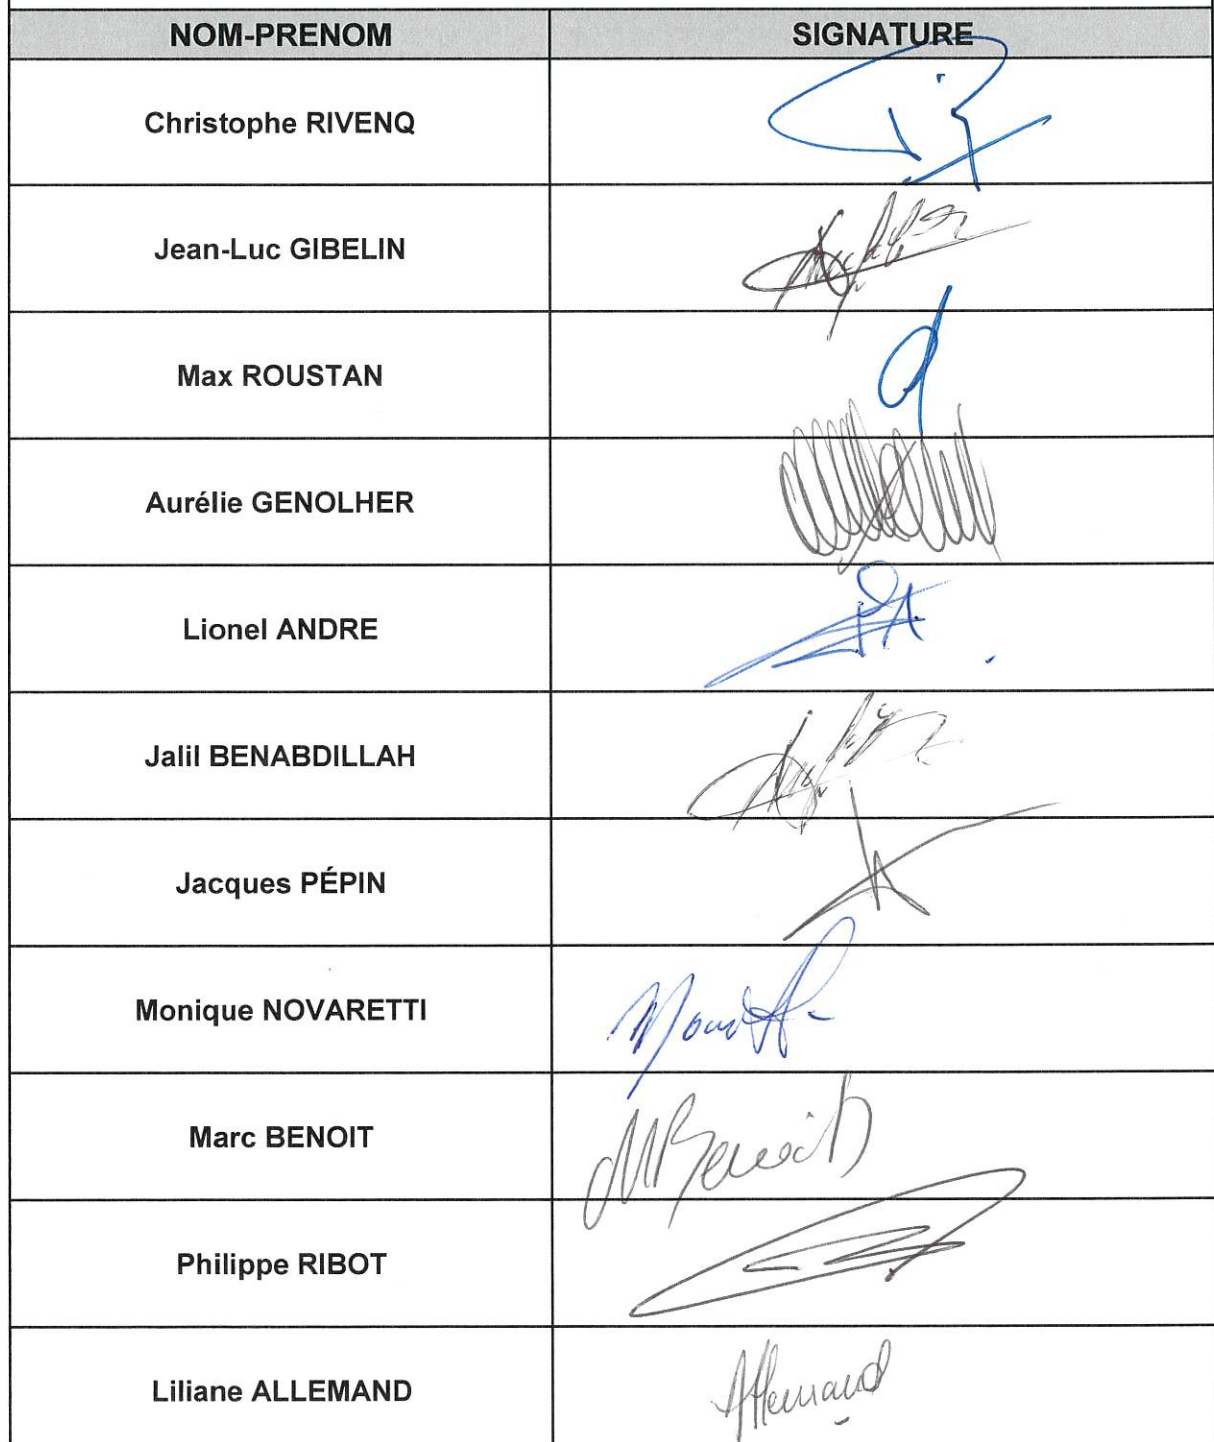 NOM-PRENOM SIGNATURE
Christophe RIVENQ
Jean-Luc GIBELIN
Max ROUSTAN
Aurélie GENOLHER
Lionel ANDRE
Jalil BENABDILLAH
Jacques PÉPIN
Monique NOVARETTI
Marc BENOIT MBenoit
Philippe RIBOT
Liliane ALLEMAND Allemand